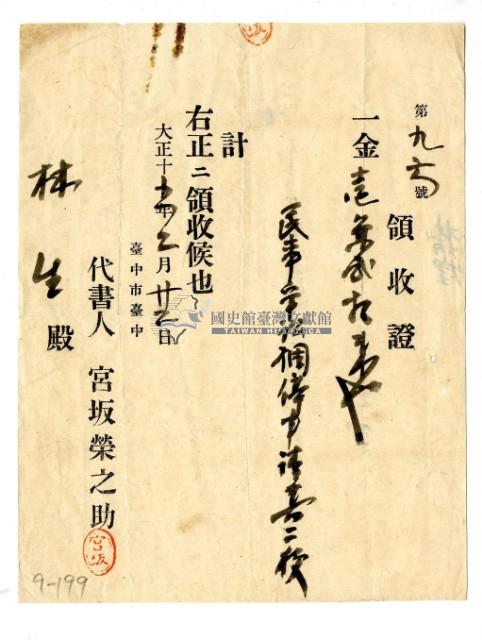 第九六號
領收證
一金壱円弍拾
民事
調停申請書二枚
計
右正ニ領收候也
大正十五年三月廿三日
臺中市臺中
代書人 宮坂榮之助
宮坂
林生殿
9-199
國史館臺灣文獻館
TAIWAN HISTORICA